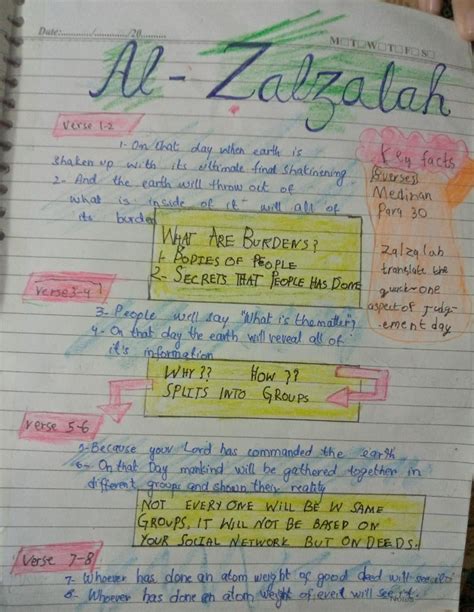 Date:............/............/20............
M T W T F S
Al - Zalzalah
Verse 1-2
1- On that day when earth is
shaken up with its ultimate final
2- And the earth will throw out of
what is inside of it - will all of
its burden
Key facts
8 verses
Medinan
Para 30
Zalzalah
translate the
quack-one
aspect of judg-
ement day
WHAT ARE BURDENS?
1- BODIES OF PEOPLE
2- SECRETS THAT PEOPLE HAS DONE
Verse 3-4
3- People will say "What is the matter"?
4- On that day the earth will reveal all of
it's information
WHY?? HOW ??
SPLITS INTO GROUPS
Verse 5-6
5- Because your Lord has commanded the earth
6- On that Day mankind will be gathered together in
different groups and shown their reality
NOT EVERY ONE WILL BE IN SAME
GROUPS. IT WILL NOT BE BASED ON
YOUR SOCIAL NETWORK BUT ON DEEDS.
Verse 7-8
7- Whoever has done an atom weight of good deed will see
8- Whoever has done an atom weight of eveil will see it.